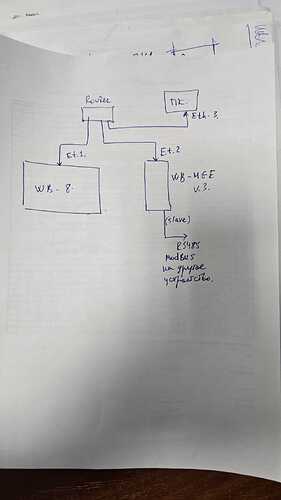 Router
ПК.
Eth.3.
Et.1.
Et.2
WB - 8.
WB-MGE
v.3.
(slave)
RS485
ModBUS
на другое
устройство.